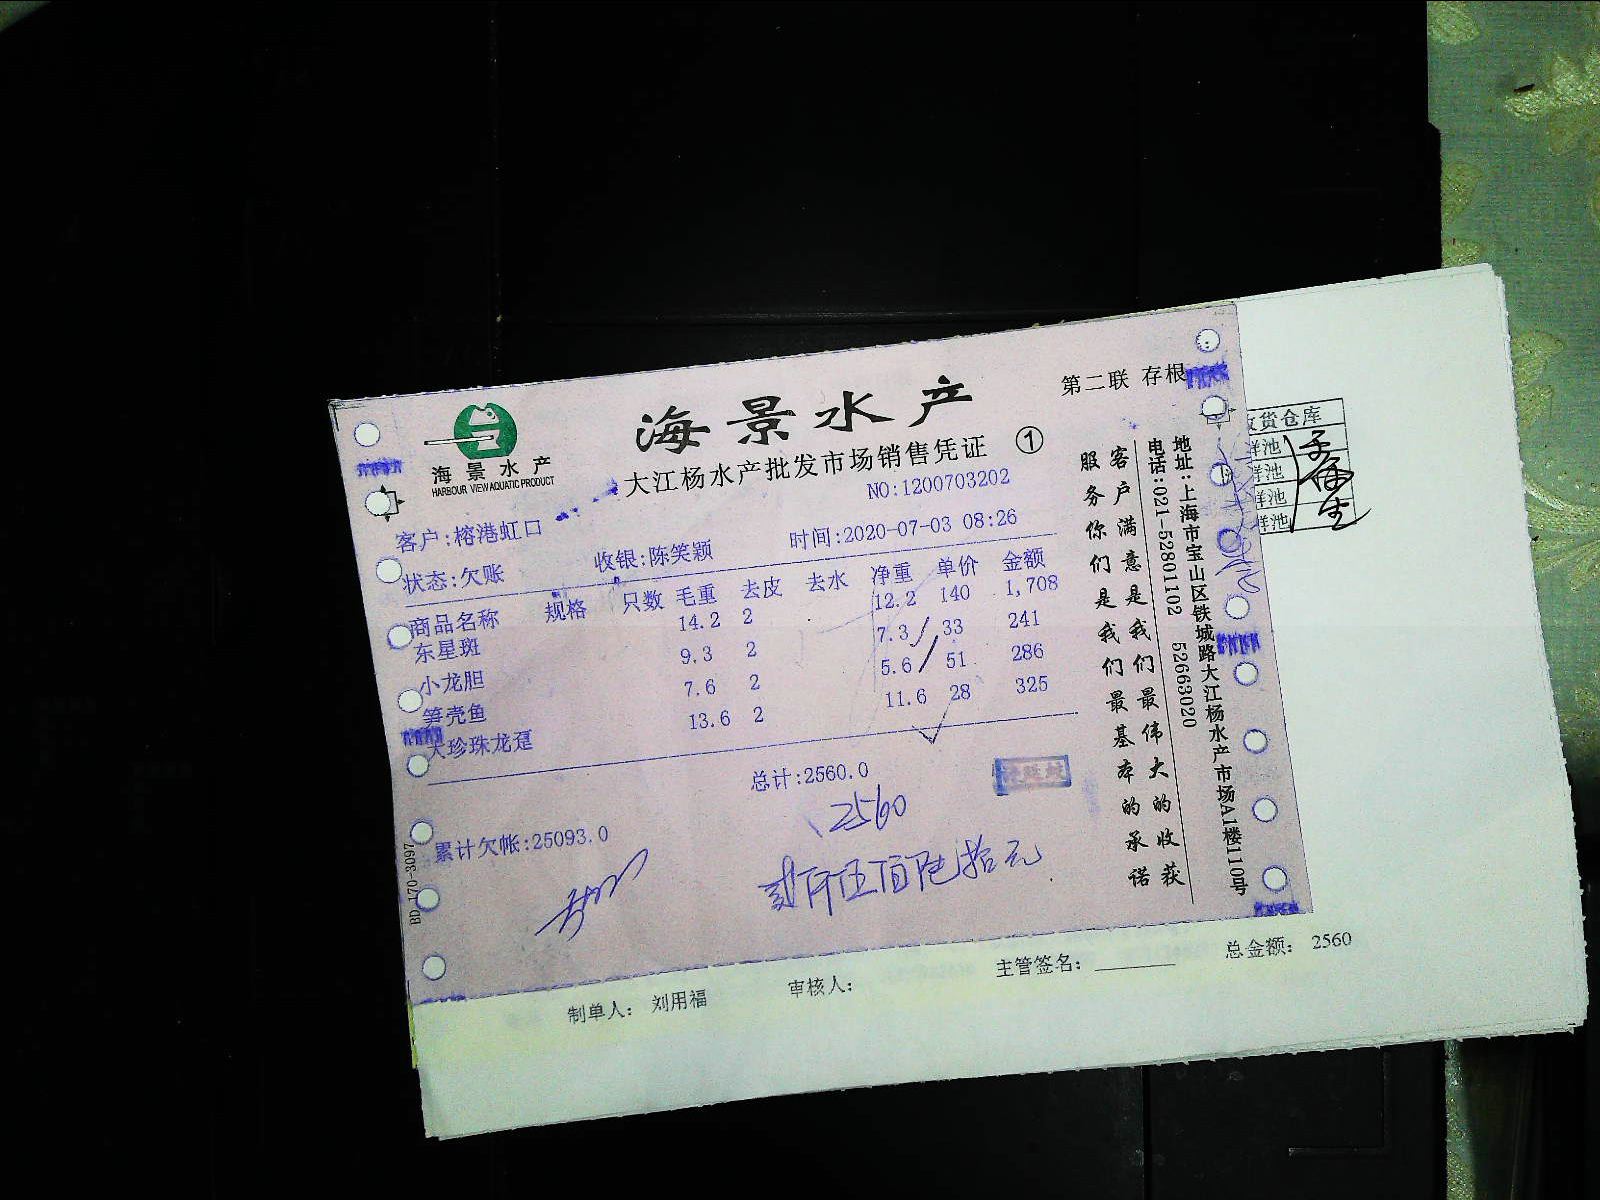 第二联 存根
海景水产
海景水产
HARBOUR VIEW AQUATIC PRODUCT
大江杨水产批发市场销售凭证 ①
NO:1200703202
客户:榕港虹口
收银:陈笑颖
时间:2020-07-03 08:26
状态:欠账
商品名称 规格 只数 毛重 去皮 去水 净重 单价 金额
东星斑 14.2 2 12.2 140 1,708
小龙胆 9.3 2 7.3 33 241
笋壳鱼 7.6 2 5.6 51 286
大珍珠龙趸 13.6 2 11.6 28 325
总计:2560.0
2560
累计欠帐:25093.0
贰仟伍佰陆拾元
BD 170-3097
客户满意是我们最伟大的收获
服务你们是我们最基本的承诺
地址:上海市宝山区铁城路大江杨水产市场A1楼110号
电话:021-52801102 52663020
货仓库
鲜池
鲜池
鲜池
鲜池
制单人: 刘用福
审核人:
主管签名:
总金额: 2560